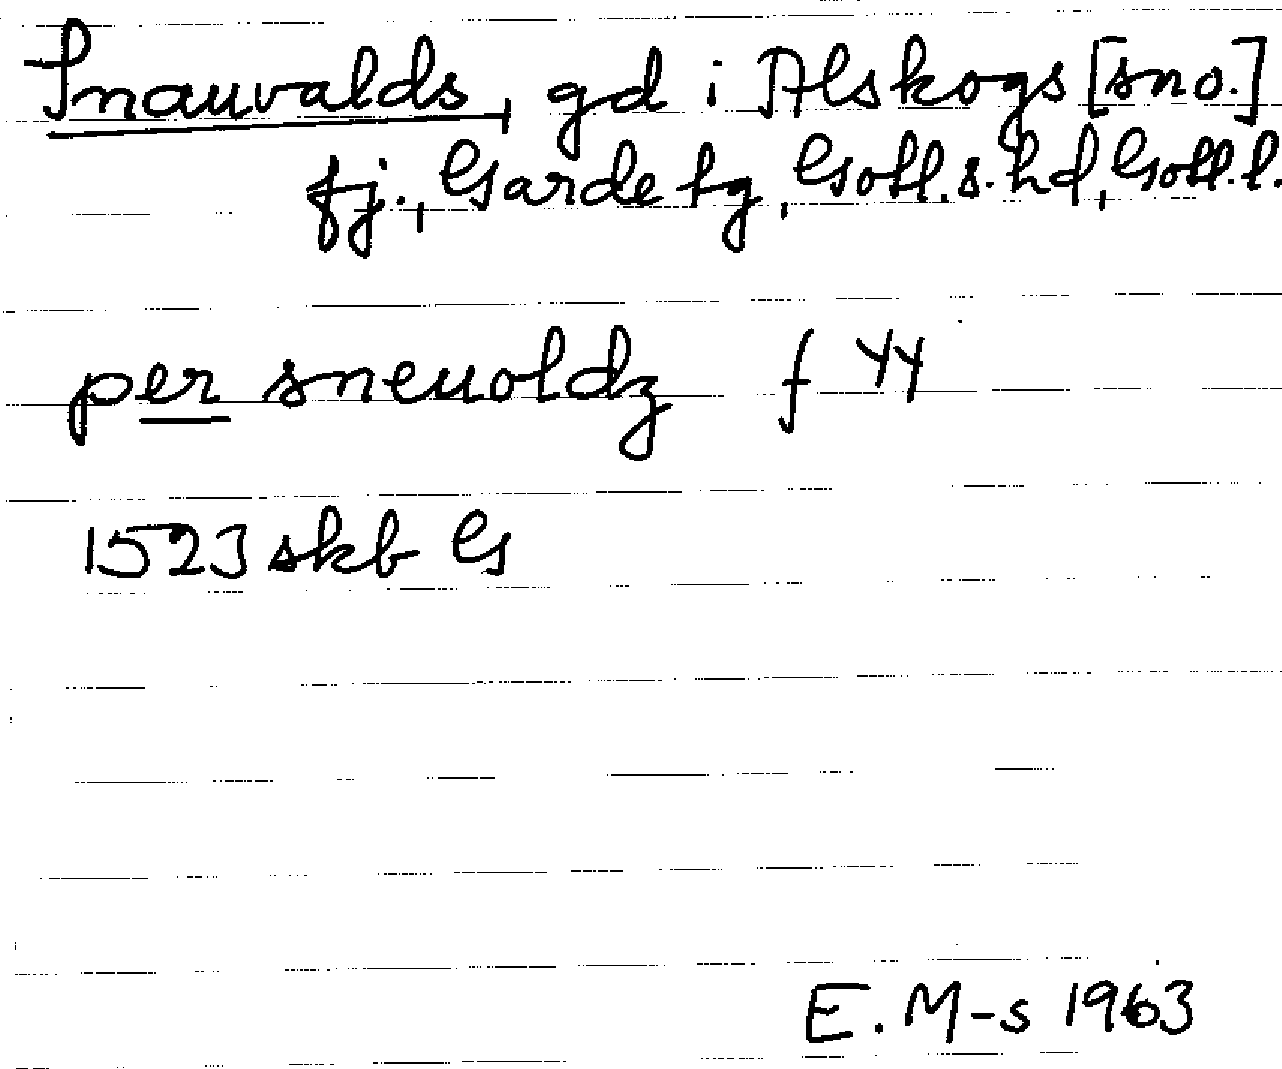 Snauvalds, gd i Alskogs [sno.]
fj., Garde tg, Gotl. s. hd, Gotl. l.
per sneuoldz f 44
1523 skb G
E. M-s 1963